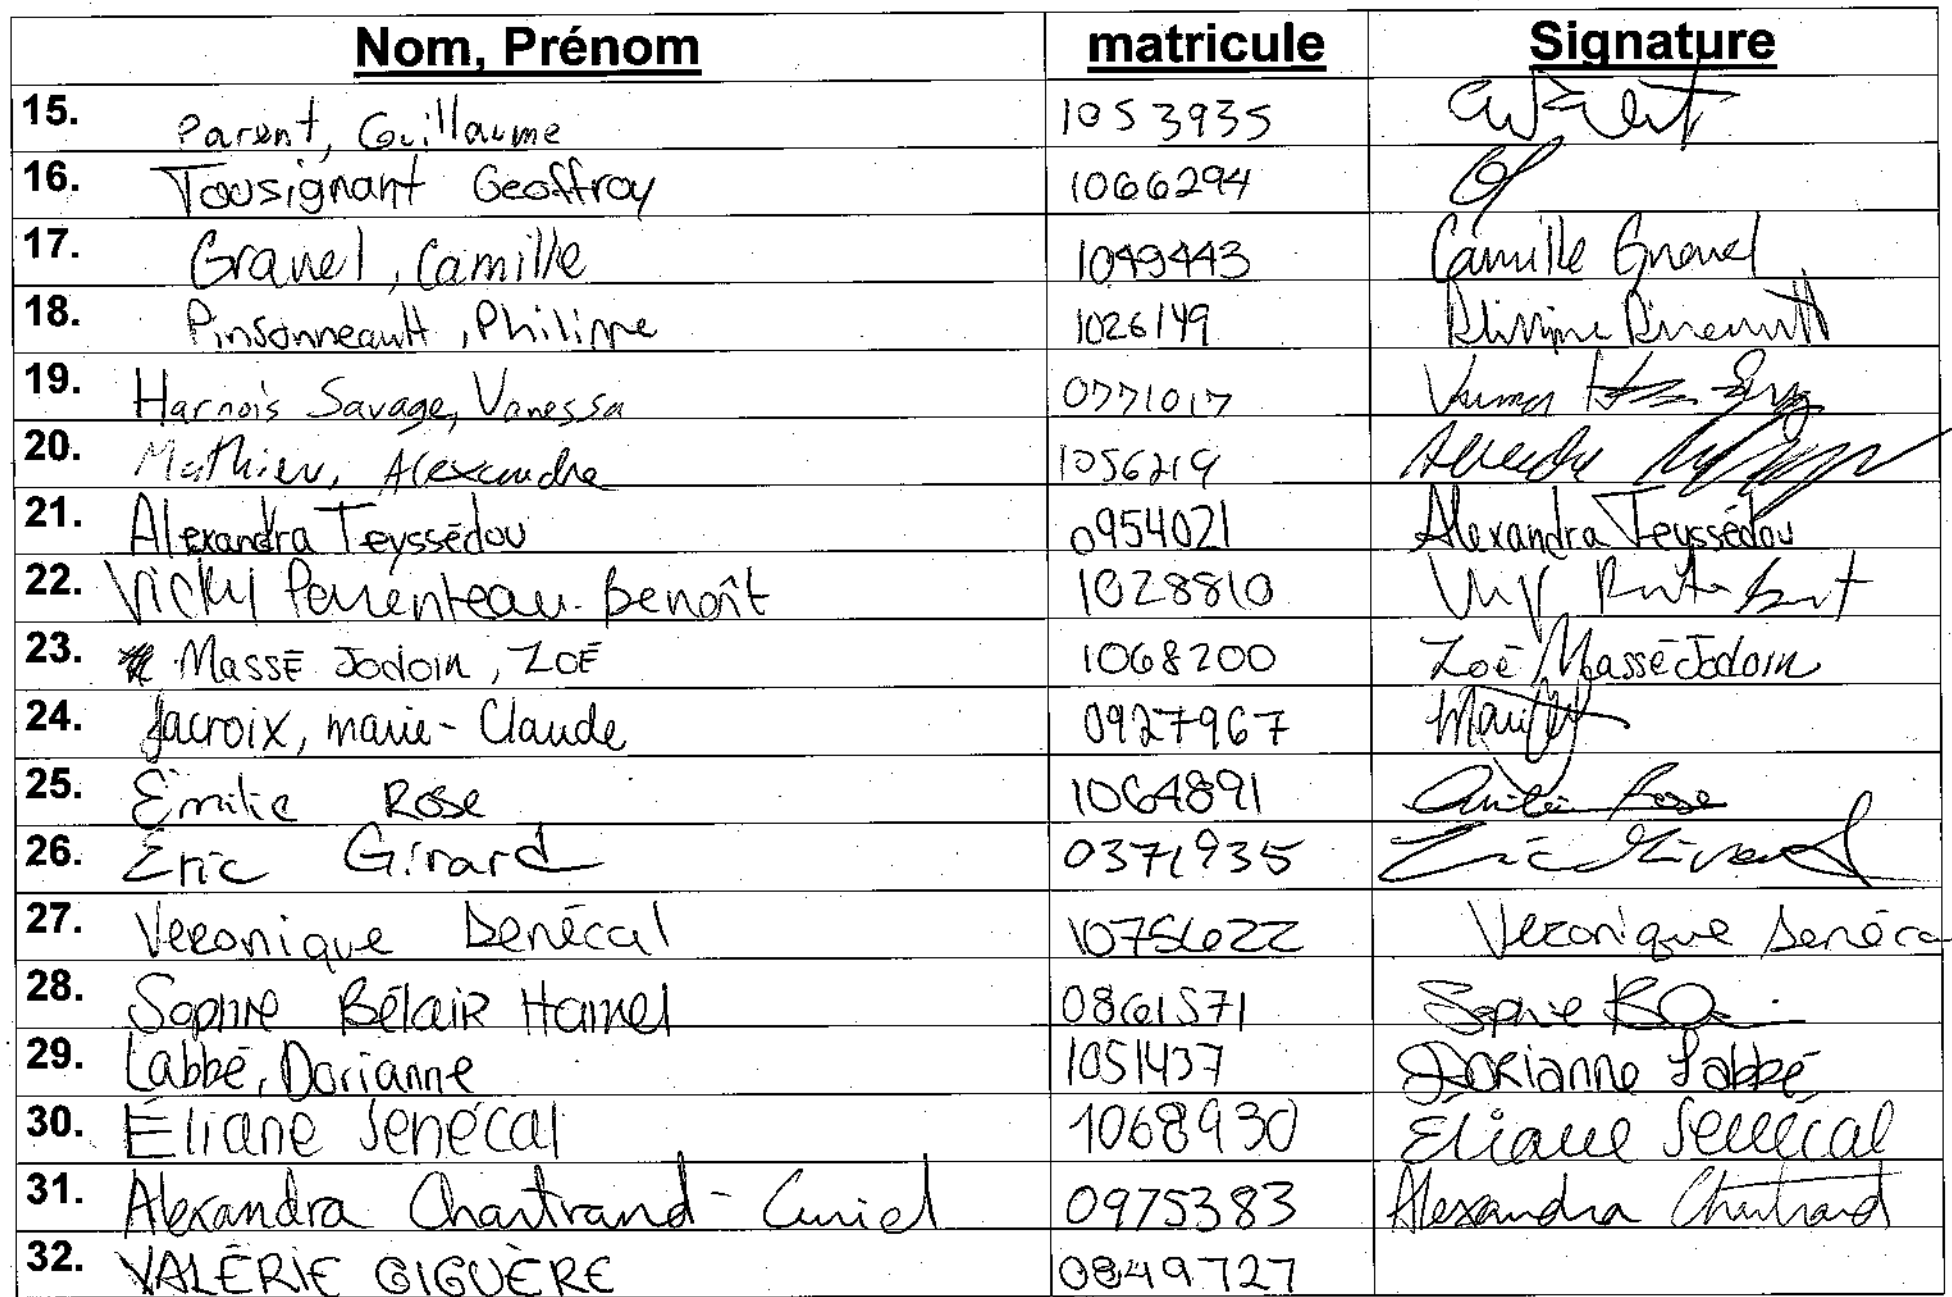 Nom, Prénom matricule Signature
15. Parent, Guillaume 1053935
16. Tousignant Geoffroy 1066294
17. Gravel, Camille 1049443 Camille Gravel
18. Pinsonneault, Philippe 1026149
19. Harnois Savage, Vanessa 0771017
20. Mathieu, Alexandre 1056219
21. Alexandra Teyssédou 0954021 Alexandra Teyssédou
22. Vicky Parenteau-Benoît 1028810
23. Massé Jodoin, Zoé 1068200 Zoé Massé Jodoin
24. Lacroix, marie-Claude 0927967
25. Émilie Rose 1064891
26. Éric Girard 0371935 Éric Girard
27. Veronique Senécal 1075622 Veronique Senéca
28. Sophie Bélair Hamel 0861571 Sophie
29. Labbé, Dorianne 1051437 Dorianne Labbé
30. Éliane Senécal 1068930 Éliane Senécal
31. Alexandra Chartrand-Curiel 0975383 Alexandra Chartrand
32. VALÉRIE GIGUÈRE 0849727